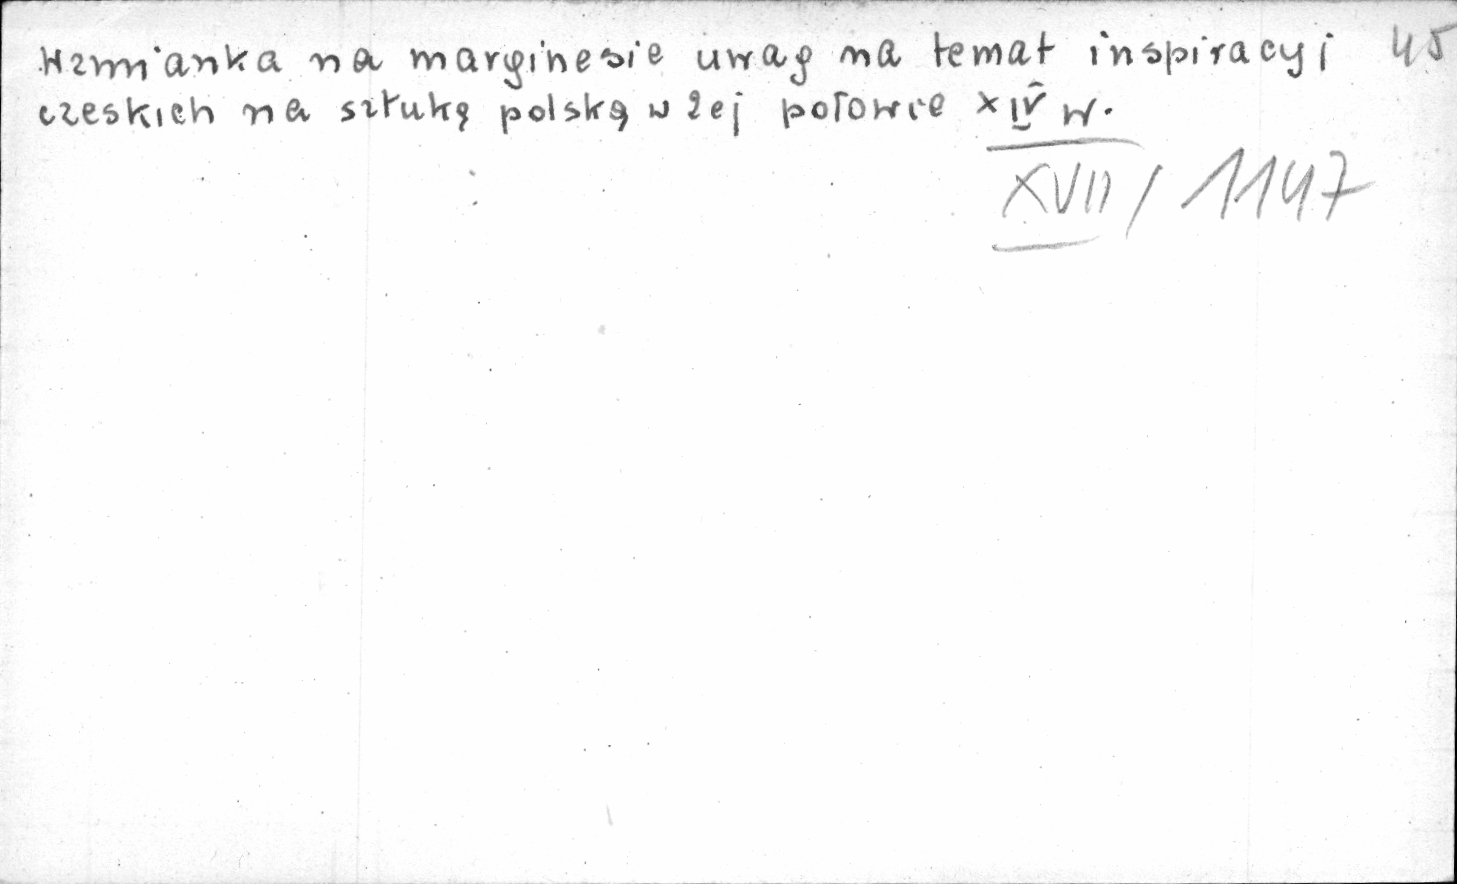 Wzmianka na marginesie uwag na temat inspiracyj 45
czeskich na sztukę polską w 2ej połowie XIV w.
XVII / 1147